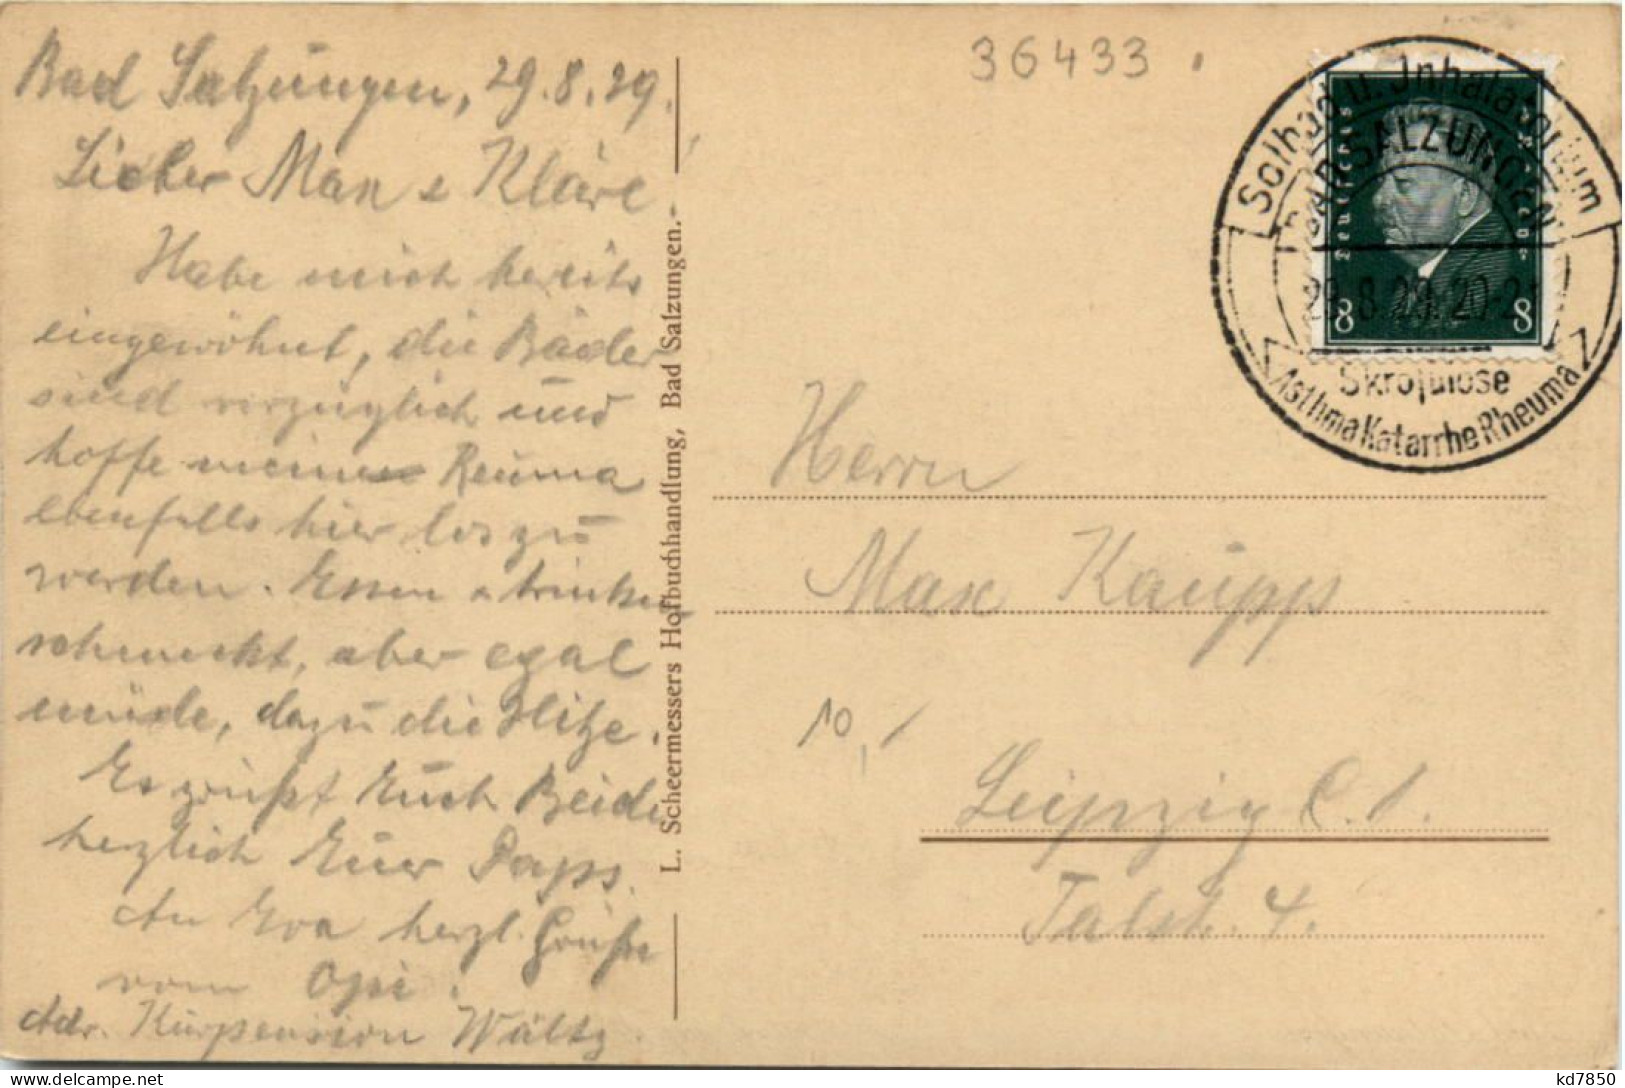 Bad Salzungen, 29.8.29.
Lieber Max & Kläre!
Habe mich bereits
eingewöhnt, die Bäder
sind vorzüglich und
hoffe meines Reuma
ebenfalls hier los zu
werden. Essen & trinken
schmeckt, aber egal
müde, dazu die Hitze.
Es grüßt Euch Beide
herzlich Euer Paps.
An Eva herzl. Grüße
vom Opi.
Adr. Kurpension Wältz.
L. Scheermessers Hofbuchhandlung, Bad Salzungen.
36433
Solbad u. Inhalatorium
BAD SALZUNGEN
29.8.29.20-21
Skrofulose
Asthma Katarrhe Rheuma
Deutsches
8 8
Herrn
Max Kaupp
10,-
Leipzig C.1.
Talstr. 4.
delcampe.net
kd7850